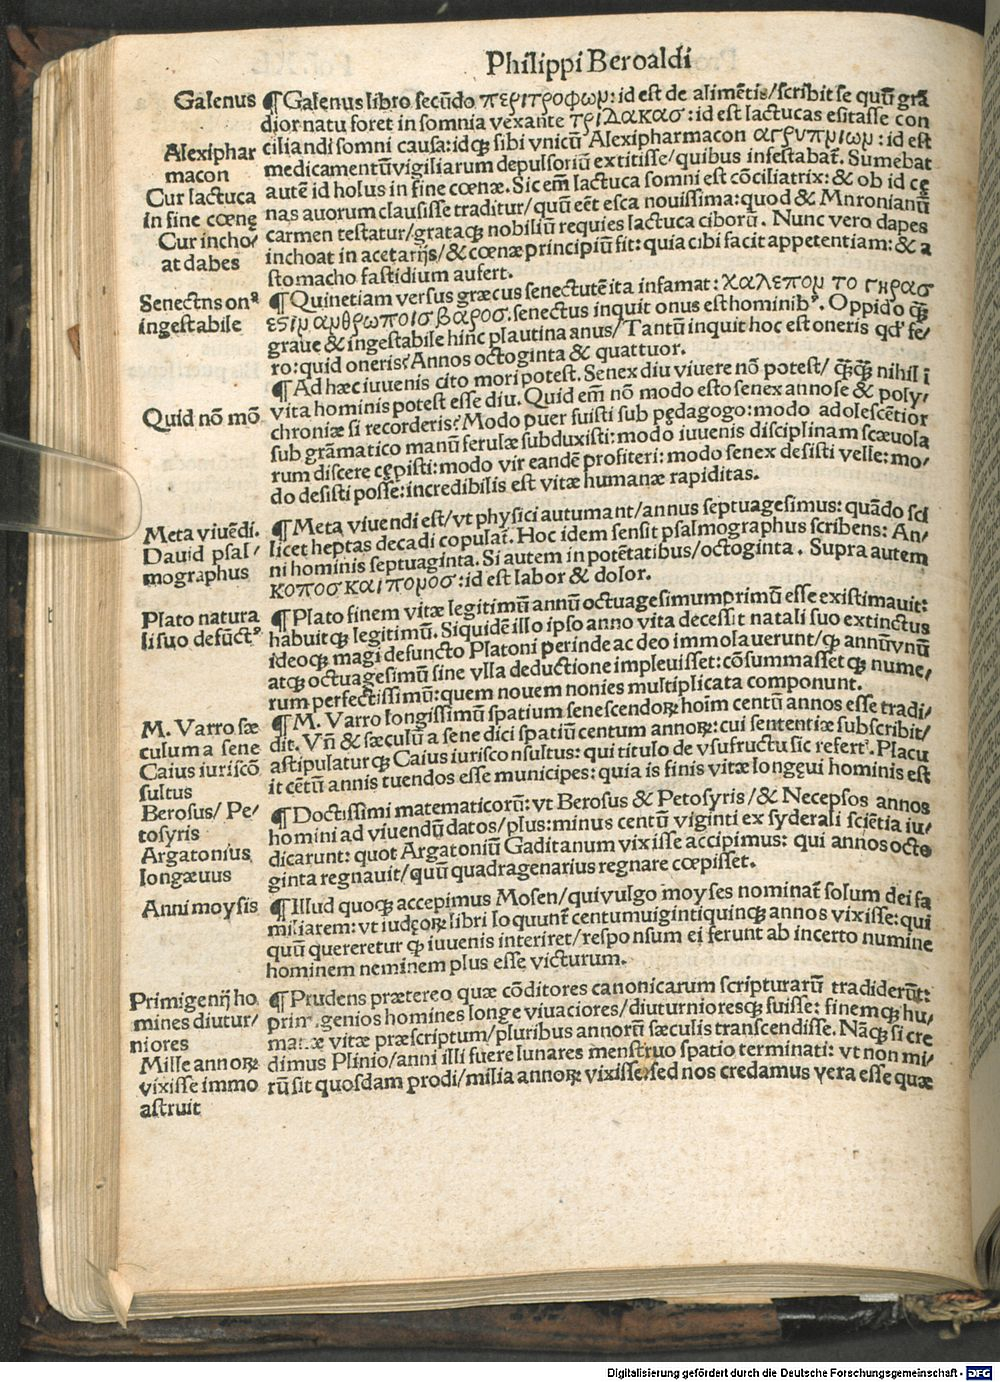 Philippi Beroaldi
Galenus
¶Galenus libro secūdo περιτροφωμ: id est de alimētis/scribit se quū grā
dior natu foret in somnia vexante τριδακασ: id est lactucas esitasse con
Alexiphar
macon
ciliandi somni causa: idq̧ sibi vnicū Alexipharmacon αγρυπμιωμ: id est
medicamentū vigiliarum depulsoriū extitisse/quibus infestabat̄. Sumebat
Cur lactuca
in fine cœnę
autē id holus in fine cœnæ. Sic em̄ lactuca somni est cōciliatrix: & ob id cę
nas auorum clausisse traditur/quū eēt esca nouissima: quod & Mnronianū
Cur incho/
at dabes
carmen testatur/grataq̧ nobiliū requies lactuca ciborū. Nunc vero dapes
inchoat in acetarijs/& cœnæ principiū fit: quia cibi facit appetentiam: & a
stomacho fastidium aufert.
Senectns onꝰ
ingestabile
¶Quinetiam versus græcus senectutē ita infamat: χαλεπομ το γηρασ
εσιμ αμθρωποισ βαροσ. senectus inquit onus est hominibꝰ. Oppido q̄ȝ
graue & ingestabile hinc plautina anus/Tantū inquit hoc est oneris qd' fe/
ro: quid oneris? Annos octoginta & quattuor.
¶Ad hæc iuuenis cito mori potest. Senex diu viuere nō potest/ q̄ȝq̄ȝ nihil ī
Quid nō mō
vita hominis potest esse diu. Quid em̄ nō modo esto senex annose & poly/
chroniæ si recorderis? Modo puer fuisti sub pędagogo: modo adolescētior
sub grāmatico manū ferulæ subduxisti: modo iuuenis disciplinam scæuola
rum discere cępisti: modo vir eandē profiteri: modo senex desisti velle: mo/
do desisti posse: incredibilis est vitæ humanæ rapiditas.
Meta viuēdi.
Dauid psal/
mographus
¶Meta viuendi est/vt physici autumant/annus septuagesimus: quādo sci
licet heptas decadi copulat̄. Hoc idem sensit psalmographus scribens: An/
ni hominis septuaginta. Si autem in potētatibus/octoginta. Supra autem
κοποσ και πομοσ: id est labor & dolor.
Plato natura
li suo defūctꝰ
¶Plato finem vitæ legitimū annū octuagesimum primū esse existimauit:
habuitq̧ legitimū. Siquidē illo ipso anno vita decessit natali suo extinctus
ideoq̧ magi defuncto Platoni perinde ac deo immolauerunt/q̧ annū vnū
atq̧ octuagesimū sine vlla deductione impleuisset: cōsummassetq̧ nume/
rum perfectissimū: quem nouem nonies multiplicata componunt.
M. Varro sæ
culum a sene
Caius iuriscō
sultus
¶M. Varro longissimū spatium senescendoꝝ hoīm centū annos esse tradi/
dit. Vn̄ & sæculū a sene dici spatiū centum annoꝝ: cui sententiæ subscribit/
astipulaturq̧ Caius iurisconsultus: qui titulo de vsufructu sic refertꝰ. Placu
it cētū annis tuendos esse municipes: quia is finis vitæ longęui hominis est
Berosus/ Pe/
tosyris
Argatonius
longæuus
¶Doctissimi matematicorū: vt Berosus & Petosyris/& Necepsos annos
homini ad viuendū datos/plus: minus centū viginti ex syderali sciētia iu/
dicarunt: quot Argatoniū Gaditanum vixisse accipimus: qui annos octo
ginta regnauit/quū quadragenarius regnare cœpisset.
Anni moysis
¶Illud quoq̧ accepimus Mosen/qui vulgo moyses nominat̄ solum dei fa
miliarem: vt iudęoꝝ libri loquunt̄ centumuigintiquinq̧ annos vixisse: qui
quū quereretur q̧ iuuenis interiret/responsum ei ferunt ab incerto numine
hominem neminem plus esse victurum.
Primigenij ho
mines diutur/
niores
¶Prudens prætereo quæ cōditores canonicarum scripturarū tradiderūt:
primigenios homines longe viuaciores/diuturnioresq̧ fuisse: finemq̧ hu/
manæ vitæ præscriptum/pluribus annorū sæculis transcendisse. Nāq̧ si cre
Mille annoꝝ
vixisse immo
astruit
dimus Plinio/anni illi fuere lunares menstruo spatio terminati: vt non mi/
rū sit quosdam prodi/milia annoꝝ vixisse: sed nos credamus vera esse quæ
Digitalisierung gefördert durch die Deutsche Forschungsgemeinschaft - DFG